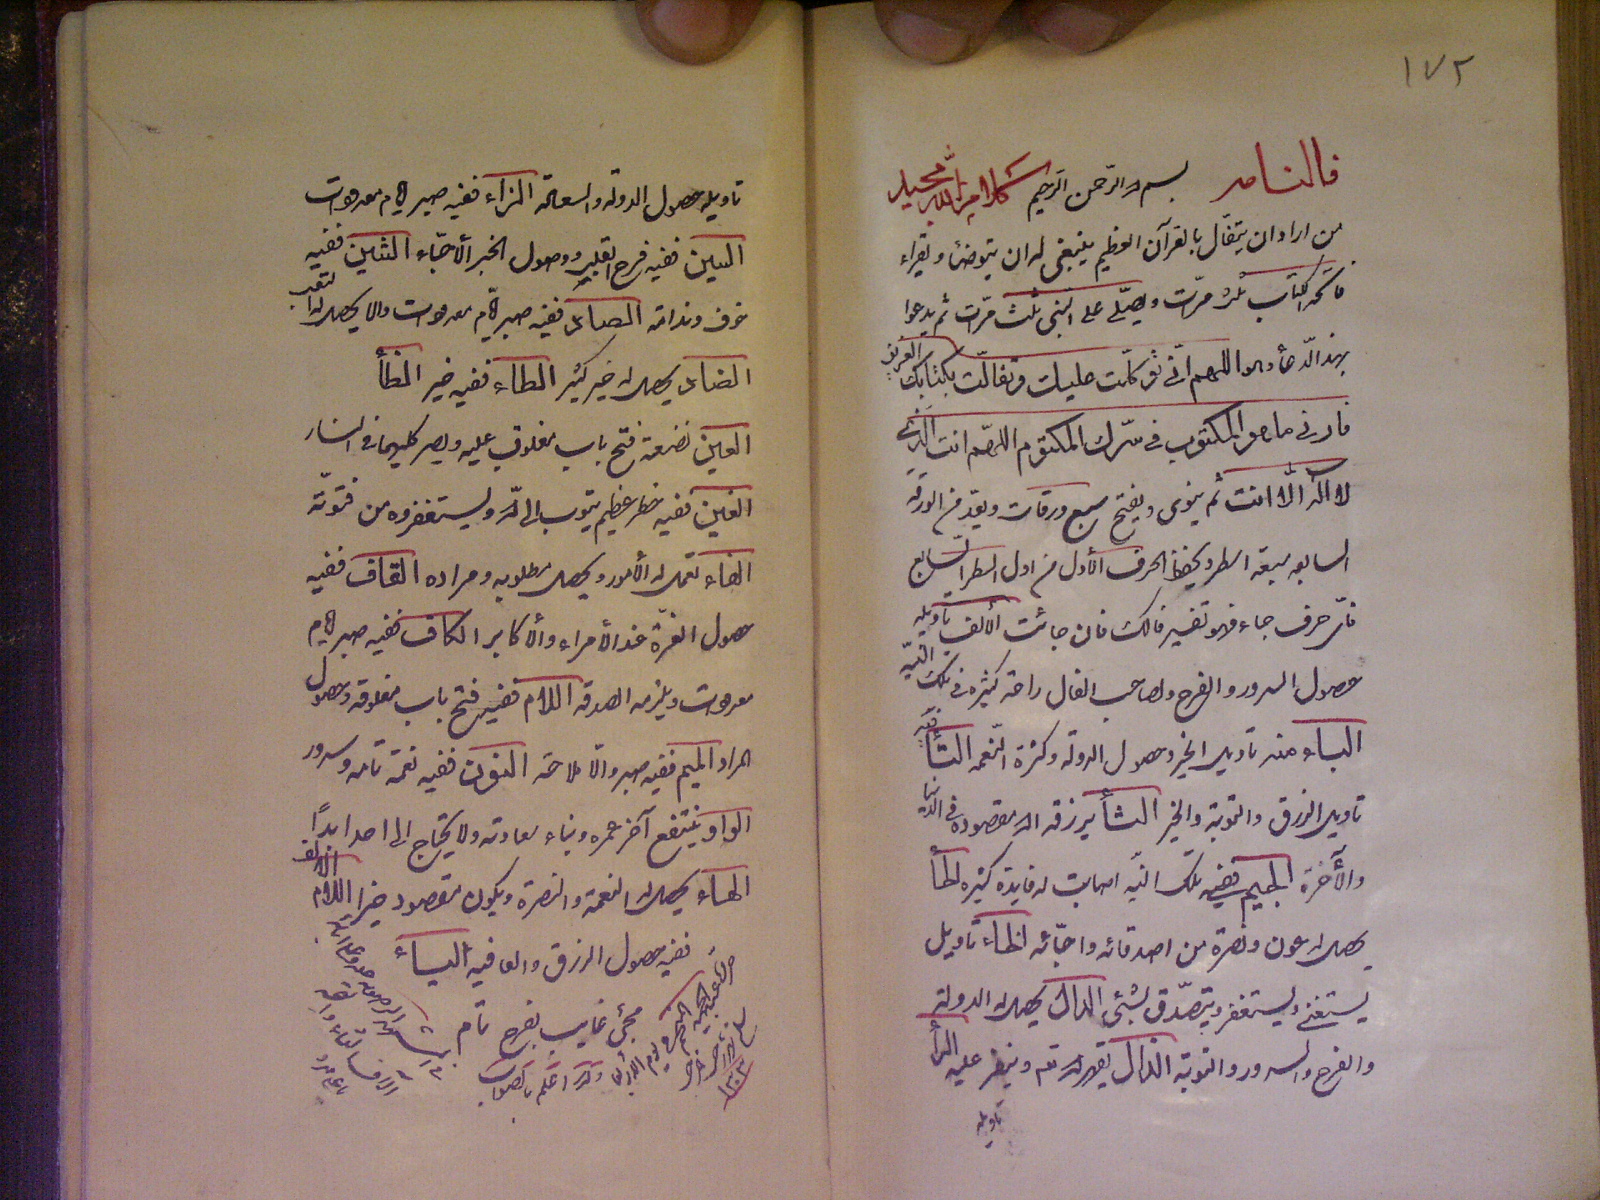 ١٧٢
فالنامه بسم الله الرحمن الرحيم كلام الله مجيد
من اراد ان يتفأل بالقرآن العظيم ينبغى له ان يتوضأ ويقراء
فاتحة الكتاب ثلث مرّات ويصلّى على النبى ثلث مرّات ثم يدعوا
بهذا الدعاء وهو اللهم انّى توكلت عليك وتفألّت بكتابك العزيز
فارنى ما هو المكتوب فى سرّك المكتوم اللهمّ انت الذى
لا اله الّا انت ثم ينوى ويفتح سبع ورقات ويعد من الورقة
السابعه سبعة اسطر الحرف الأول من اول السطر السابع
فاىّ حرف جاء فهو تفسير فالك فان جائت الألف تأويله
حصول السرور والفرح ولصاحب الفال راحة كثيره فى تلك النيّه
الباء تأويل الخير وحصول الدولة وكثرة النعمه التأ ففيه
تاويل الرزق والتوبة والخير الثأ يرزقه الله مقصوده فى الدنيا
والآخرة الجيم ففيه تلك النيّه له فايدة كثيره الحأ
يحصل له عون ونصرة من اصدقائه واحبّائه الخاء تاويل
يستغنى ويستغفر ويتصدّق بشئى الدال يحصل له الدولة
والفرح والسرور والتوبة الذال عليه الرأ
تاويله
تاويله حصول الدولة والسعادة الزاء ففيه صبر ايام معدودات
السين ففيه فرح القلب ووصول الخبر الأحبّاء الشين ففيه
خوف وندامة الصاد ففيه صبر ايّام معدودات والا يحصل له التعب
الضاد يحصل له خير كثير الطاء ففيه خير الظأ
العين فتح باب مغلوق عليه
الغين ففيه خطر عظيم يتوب الى الله ويستغفروه من
الفاء له الأمور ويحصل مطلوبه ومراده القاف ففيه
حصول العزّة عند الأمراء والأكابر الكاف ففيه صبر ايام
معدودات ويلزمه الصدقة اللام ففيه فتح باب مغلوقه وحصول
المراد الميم ففيه صبر النون ففيه نعمة تامه وسرور
الواو ينتفع آخر عمره ولا يحتاج الى احد ابداً
الهاء يحصل له النعمة والنصرة ويكون مقصود خيرا اللام الالف
ففيه حصول الرزق والعافيه الياء
مجئ غايب بفرح تام
والله اعلم بالصواب
١٣٠٣